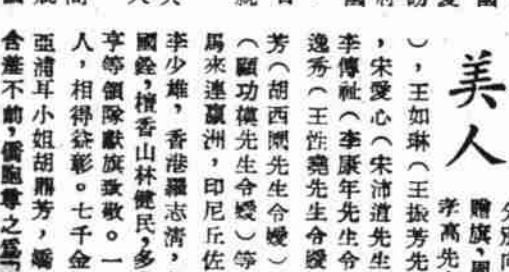 美人
贈旗，
孝高先
），王如琳（王振芳先
，宋愛心（宋沛道先生
李傳祉（李康年先生令
逸秀（王性堯先生令嬡
芳（胡西園先生令嬡）
（顧功模先生令嬡）等
馬來連瀛洲，印尼丘佐
李少雄，香港羅志清，
國銓，檀香山林健民，多
亨等領隊獻旗致敬。一
人，相得益彰。七千金
亞浦耳小姐胡鼎芳，嬌
含羞不前，僑胞尊之爲